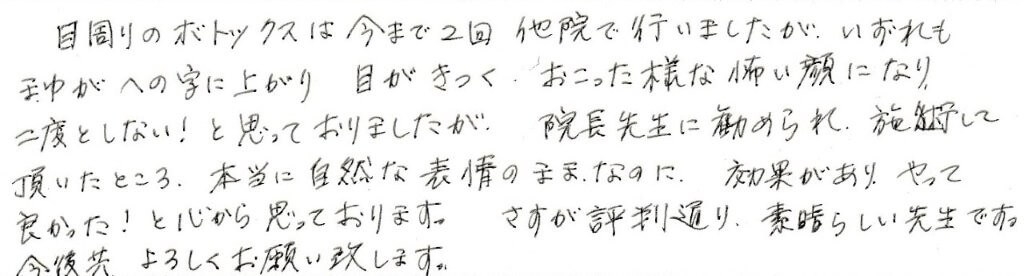 目周りのボトックスは今まで2回 他院で行いましたが、いずれも
まゆがへの字に上がり 目がきつく、おこった様な怖い顔になり、
二度としない！と思っておりましたが、 院長先生に勧められ、施術して
頂いたところ、本当に自然な表情のまま、なのに、 効果があり、やって
良かった！と心から思っております。 さすが評判通り、素晴らしい先生です。
今後共、よろしくお願い致します。